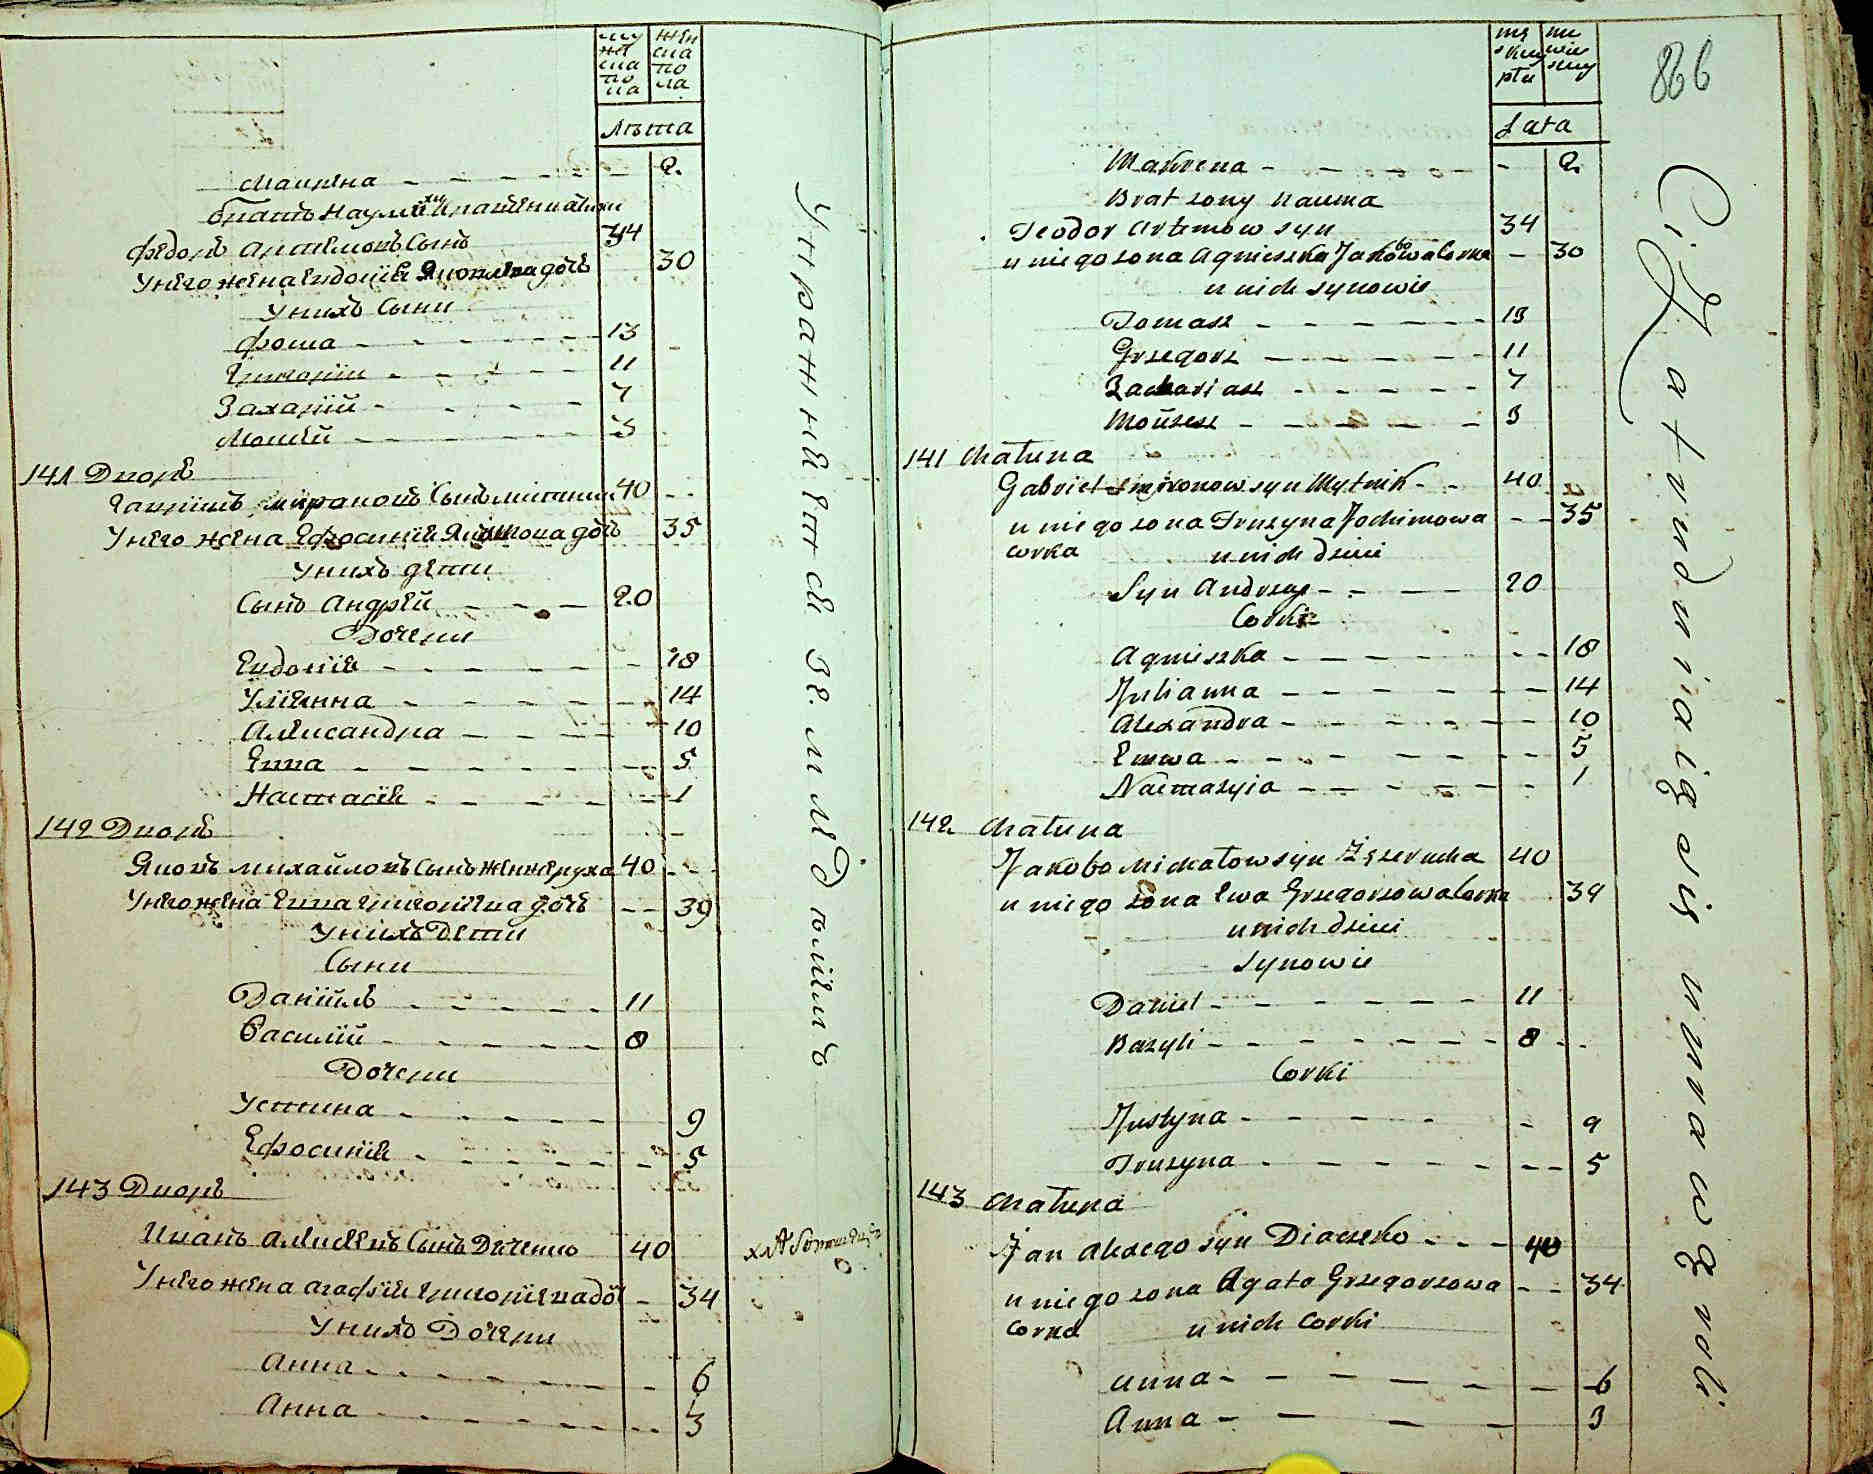 муж
ска
по
ла
жен
ска
по
ла
Лѣта
Макрена 2
братъ Наума жены
Федоръ Артемовъ Сынъ 34
У него жена Евдокіѣ Яковлева дочь 30
У нихъ Сыни
Фома 13
Григорій 11
Захарій 7
Мосей 3
141 Дворъ
Гавріілъ Мироновъ Сынъ 40
У него жена Ефросиніѣ дочь 35
У нихъ дети
Сынъ Андрей 20
Дочери
Евдокіѣ 18
Уліѣнна 14
Александра 10
Евва 5
Настасіѣ 1
142 Дворъ
Яковъ Михайловъ Сынъ Женжеруха 40
У него жена Евва Григоріева дочь 39
У нихъ Дети
Сыни
Даніилъ 11
Василій 8
Дочери
Устина 9
Ефросиніѣ 5
143 Дворъ
Иванъ Алексѣевъ Сынъ Дяченко 40
У него жена Агафіѣ Григоріева доч 34
У нихъ Дочери
Анна 6
Анна 3
Упражняется въ земледѣліи
mę
skuy
płci
nie
wie
sciey
Lata
866
Makrena 2
Brat zony Nauma
Teodor Artemow syn 34
u niego zona Agnieszka Jakobowa Corka 30
u nich synowie
Tomasz 13
Grzegorz 11
Zachariasz 7
Moyzesz 3
141 Chałupa
Gabriel Mironow syn Mytnik 40
u niego zona Fruzyna Jochimowa 35
corka u nich dzieci
Syn Andrzey 20
Corki
Agnieszka 18
Julianna 14
Alexandra 10
Ewwa 5
Nastazyia 1
142 Chałupa
Jakobo Michałow syn Żęzerucha 40
u niego zona Ewa Grzegorzowa Corka 39
u nich dzieci
synowie
Daniel 11
Bazyli 8
Corki
Justyna 9
Fruzyna 5
143 Chałupa
Jan Alexego syn Diaczeko 40
u niego zona Agata Grzegorzowa 34
corka u nich corki
Anna 6
Anna 3
Ci Zatrudniaią się uprawą roli